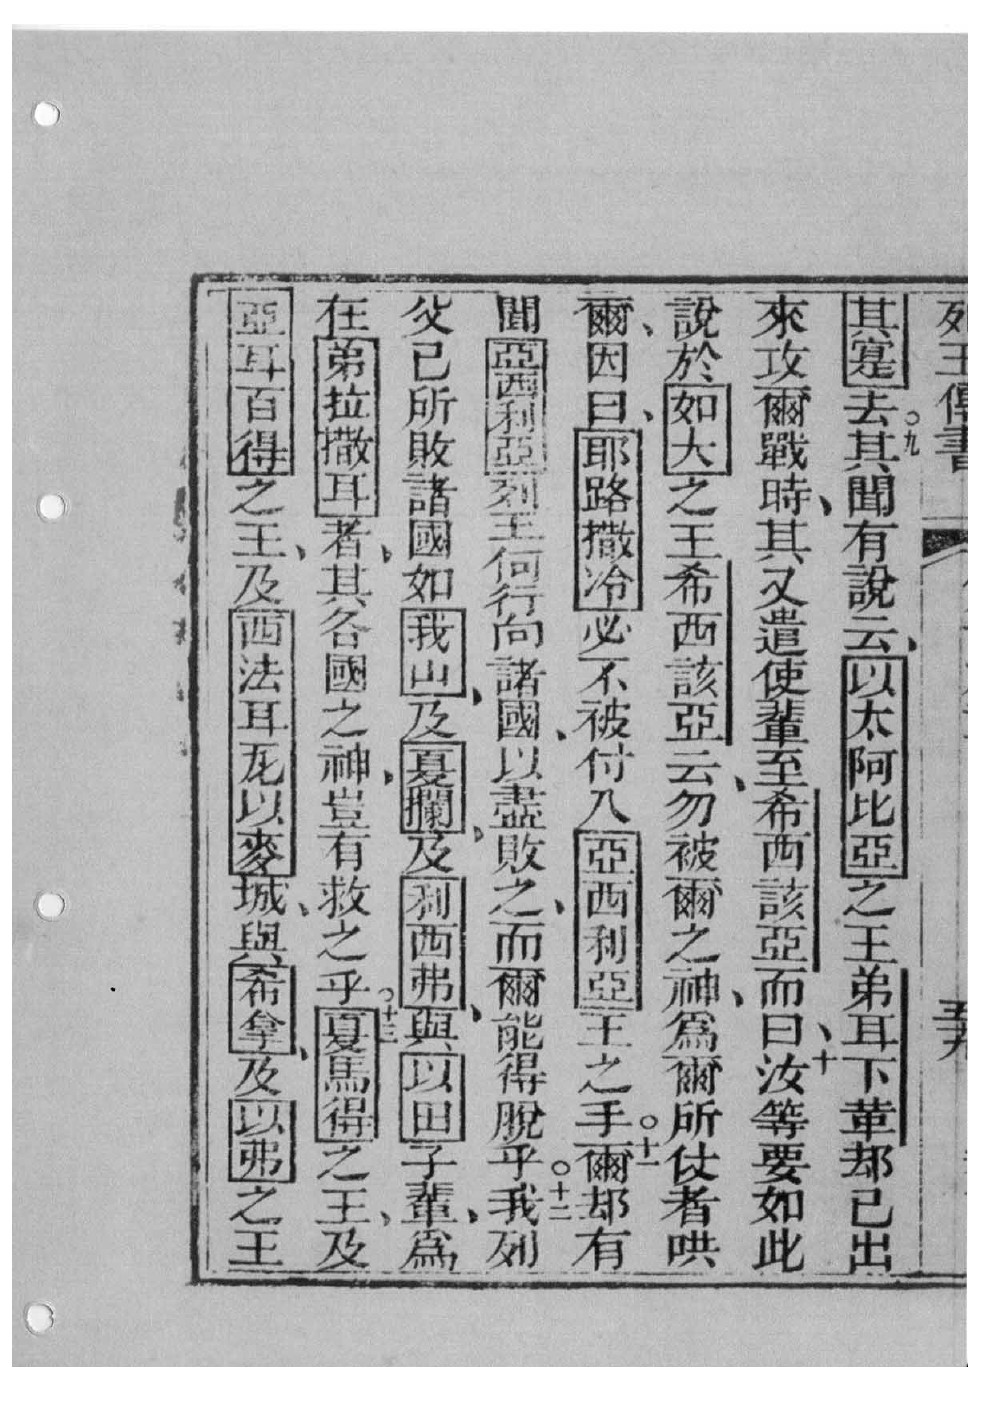 列王傳書
五九
其寔去○九其聞有說云、以太阿比亞之王弟耳下葷却已出
來攻爾戰時、其又遣使輩至希西該亞而曰、十汝等要如此
說於如大之王希西該亞云、勿被爾之神、爲爾所仗者哄
爾、因曰、耶路撒冷必不被付入亞西利亞王之手○十一爾却有
聞亞西利亞列王何行向諸國、以盡敗之、而爾能得脫乎○十二我列
父已所敗諸國如我山、及夏攔、及利西弗、與以田子輩、爲
在弟拉撒耳者、其各國之神、豈有救之乎○十三夏馬得之王、及
亞耳百得之王、及西法耳瓦以麥城、與希拿、及以弗之王